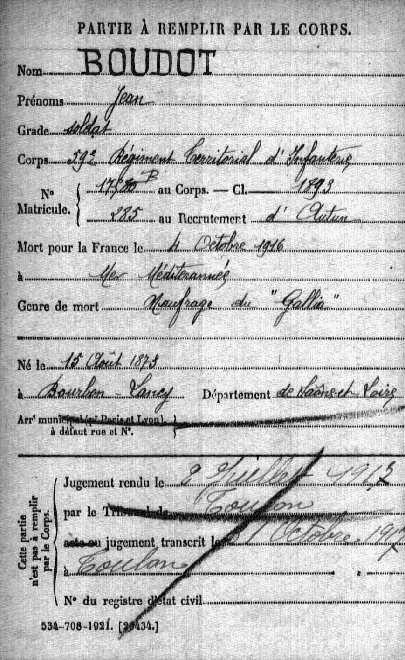 PARTIE À REMPLIR PAR LE CORPS.
Nom BOUDOT
Prénoms Jean
Grade soldat
Corps 59e Régiment Territorial d'Infanterie
No Matricule. { au Corps. — Cl. 1893
285 au Recrutement d'Autun
Mort pour la France le 4 Octobre 1916
à Mer Méditerannée
Genre de mort Naufrage du "Gallia"
Né le 15 Août 1873
à Bourbon-Lancy Département de Saône et Loire
Arrt municipal (pr Paris et Lyon)
à défaut rue et No.
Cette partie n'est pas à remplir par le Corps.
Jugement rendu le 2 Juillet
par le Tribunal de Toulon
acte ou jugement transcrit le Octobre
à Toulon
No du registre d'état civil
534-708-1921. [26434.]